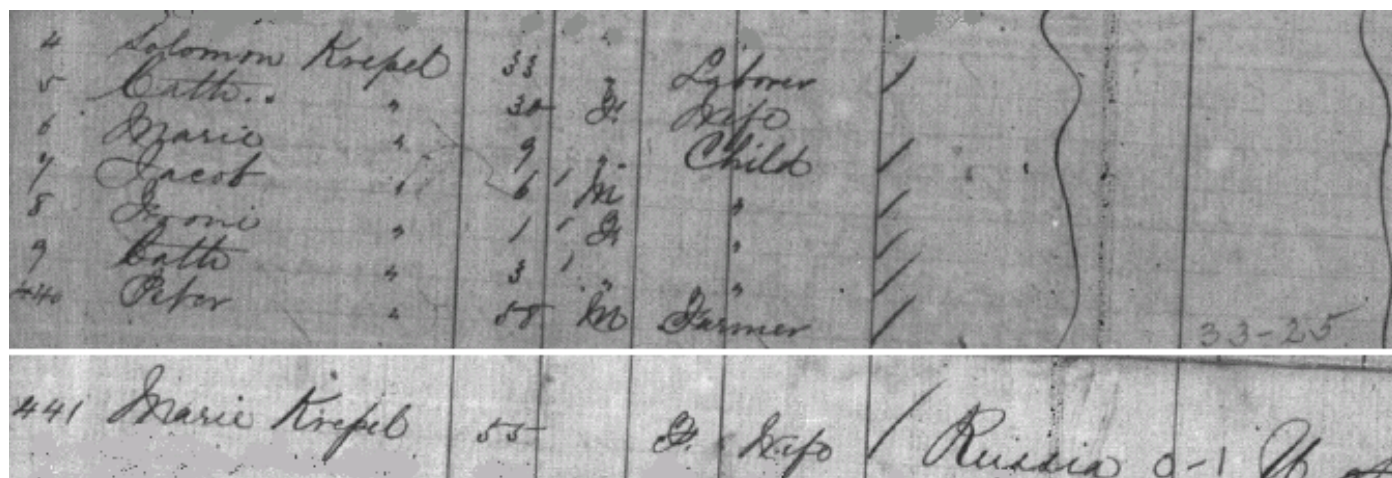 4 Solomon Krepel 33 " Laborer /
5 Cath.. " 30 F. Wife
6 Marie " 9 " Child /
7 Jacob " 6 ' M " /
8 " 1 ' F. " /
9 Cath " 3 ' " " /
440 Peter " 58 M Farmer / 33-25
441 Marie Krepel 55 F. Wife / Russia 0-1